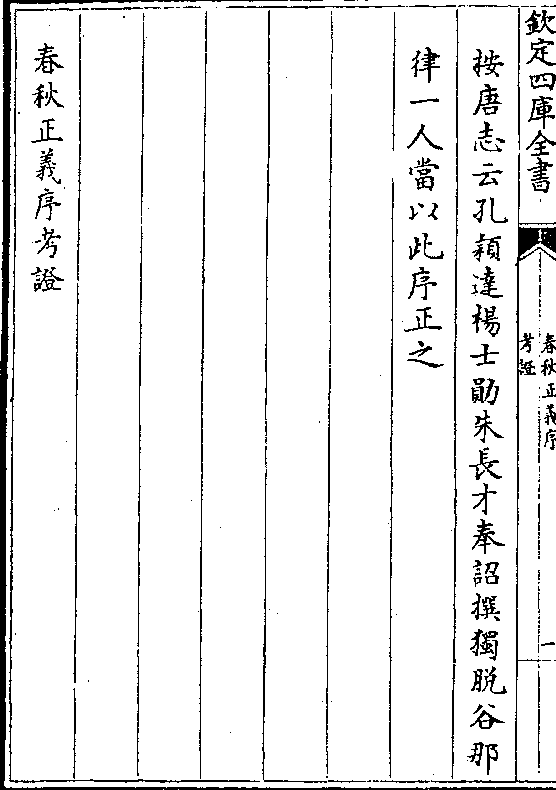 欽定四庫全書
春秋正義序
考證
一
按唐志云孔穎達楊士勛朱長才奉詔撰獨脱谷那
律一人當以此序正之
春秋正義序考證